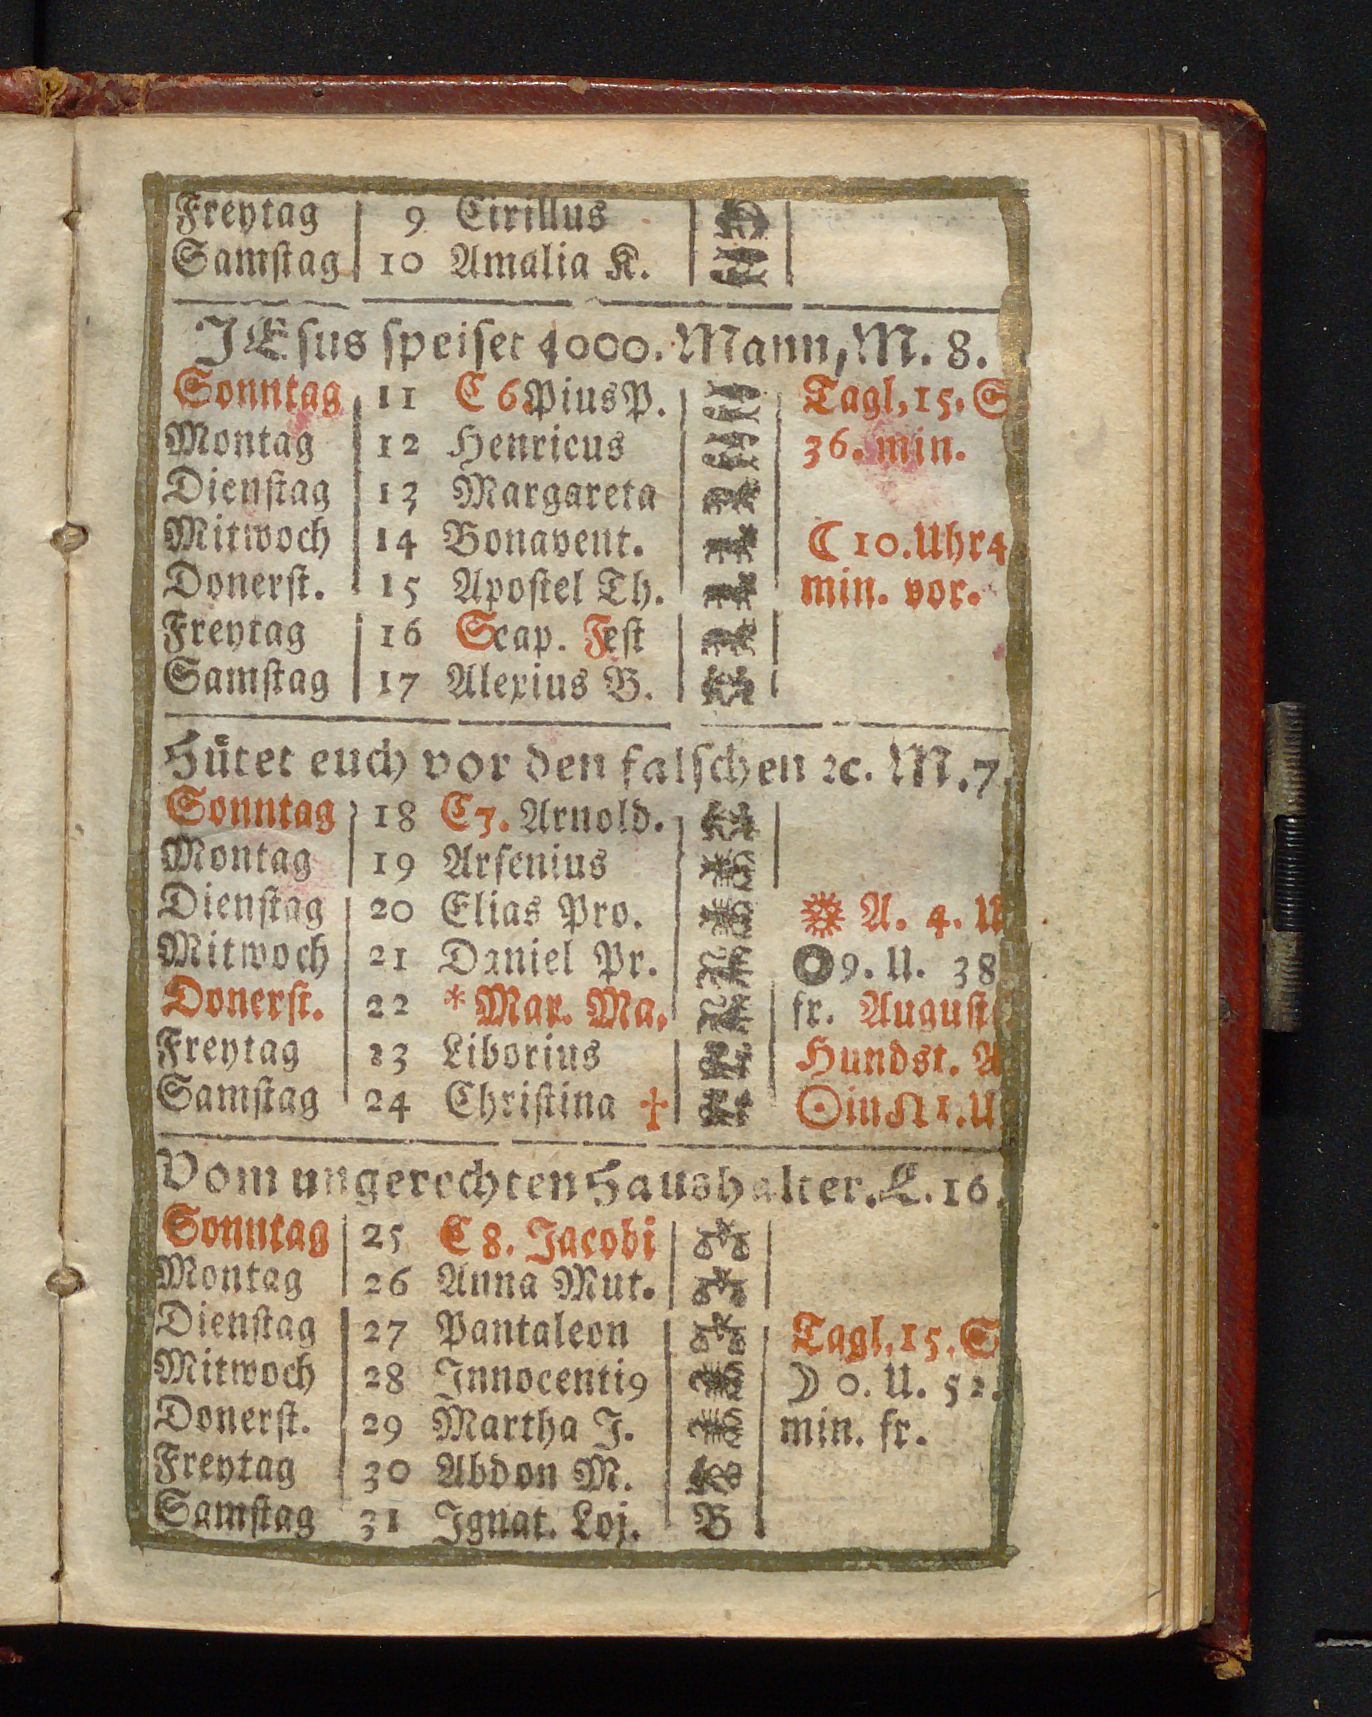 Freytag 9 Cirillus
Samſtag 10 Amalia K.
JEſus ſpeiſet 4000. Mann, M. 8.
Sonntag 11 C 6. Pius P. Tagl. 15. S
Montag 12 Henricus 36. min.
Dienſtag 13 Margareta
Mitwoch 14 Bonavent. ☾ 10. Uhr 4
Donerſt. 15 Apoſtel Th. min. vor.
Freytag 16 Scap. Feſt
Samſtag 17 Alexius B.
Hütet euch vor den falſchen ꝛc. M. 7.
Sonntag 18 C 7. Arnold.
Montag 19 Arſenius
Dienſtag 20 Elias Pro. A. 4. U
Mitwoch 21 Daniel Pr. 9. U. 38
Donerſt. 22 *Mar. Ma. fr. Auguſt
Freytag 23 Liborius Hundst. A
Samſtag 24 Chriſtina ☩ ☉ in ♌ 1. U.
Vom ungerechten Haushalter. L. 16.
Sonntag 25 C 8. Jacobi
Montag 26 Anna Mut.
Dienſtag 27 Pantaleon Tagl. 15. S
Mitwoch 28 Innocenti9 ☽ 0. U. 52.
Donerſt. 29 Martha J. min. fr.
Freytag 30 Abdon M.
Samſtag 31 Ignat. Loj. B